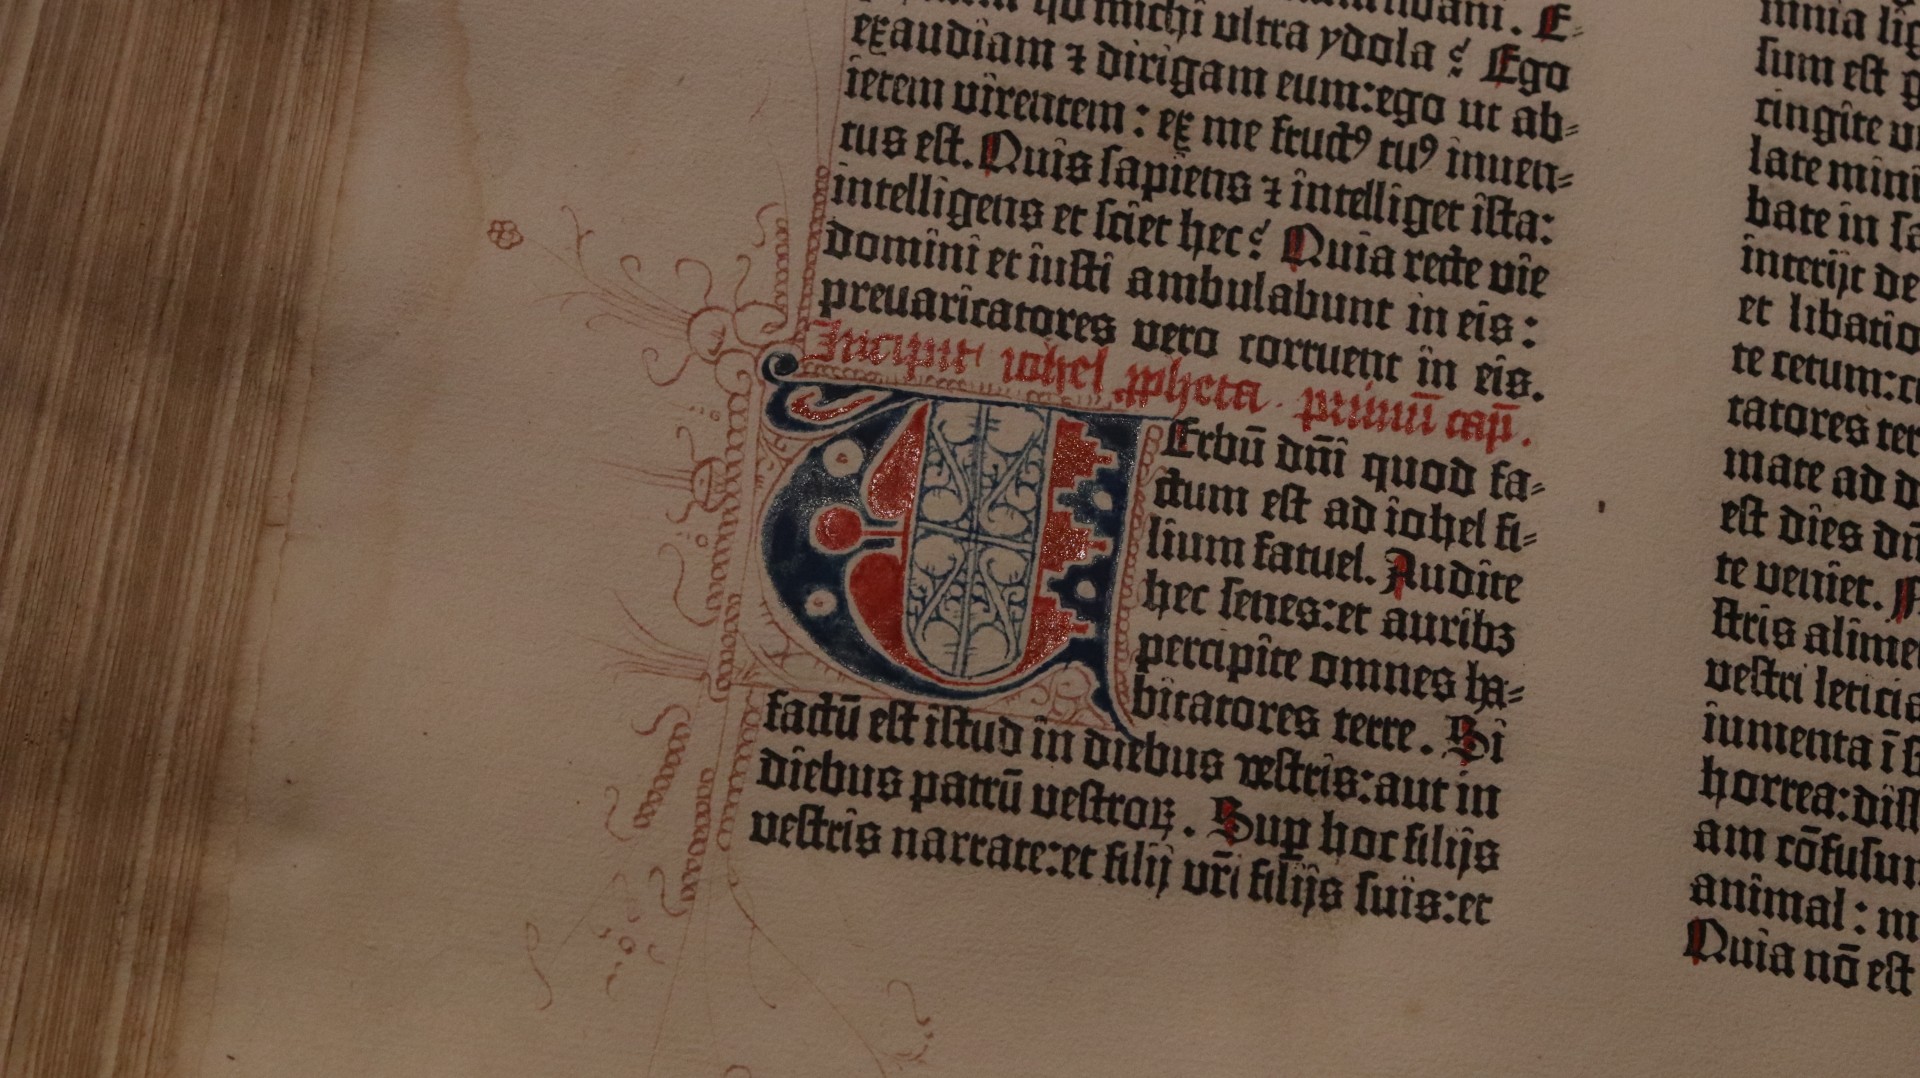 michi ultra ydola ⸮ Ego
exaudiam ⁊ dirigam eum:ego ut ab⸗
ietem virentem : ex me fructꝰ tuꝰ inuen⸗
tus est. Quis sapiens ⁊ intelliget ista:
intelligens et sciet hec⸮ Quia recte vie
domini et iusti ambulabunt in eis:
preuaricatores vero corruent in eis.
Incipit iohel ꝓpheta . primū cap̄.
VErbū dn̄i quod fa⸗
ctum est ad iohel fi⸗
lium fatuel. Audite
hec senes:et auribꝫ
percipite omnes ha⸗
bitatores terre . Si
factū est istud in diebus vestris:aut in
diebus patrū vestroꝝ . Suꝑ hoc filijs
vestris narrate:et filij vr̄i filijs suis:et
mnia lig
sum est g
cingite v
late mini
bate in sa
interijt de
et libatio
te cetum:c
tatores ter
mate ad d
est dies dn̄
te veniet.
stris alime
vestri leticia
iumenta ī g
horrea:diss
am cōfusu
animal : m
Quia nō est